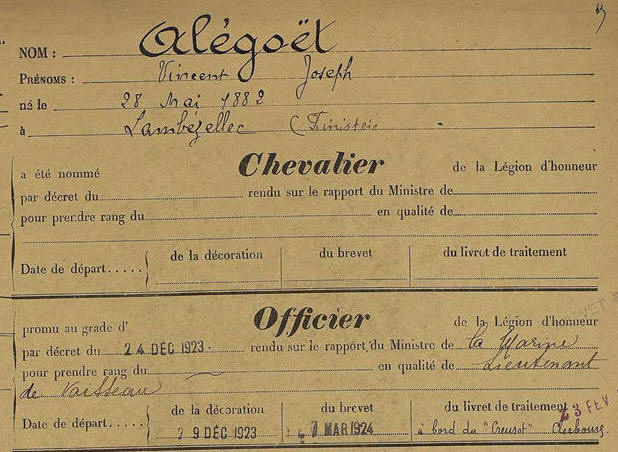 NOM : Alégoët
PRÉNOMS : Vincent Joseph
né le 28 Mai 1882
à Lambézellec (Finistère
a été nommé Chevalier de la Légion d'honneur
par décret du rendu sur le rapport du Ministre de
pour prendre rang du en qualité de
Date de départ..... de la décoration du brevet du livret de traitement
promu au grade d' Officier de la Légion d'honneur
par décret du 24 DÉC 1923 rendu sur le rapport du Ministre de la Marine
pour prendre rang du en qualité de Lieutenant
de Vaisseau
Date de départ..... de la décoration du brevet du livret de traitement
29 DÉC 1923 7 MAR 1924 à bord du "Creusot" Cherbourg
3 FEV